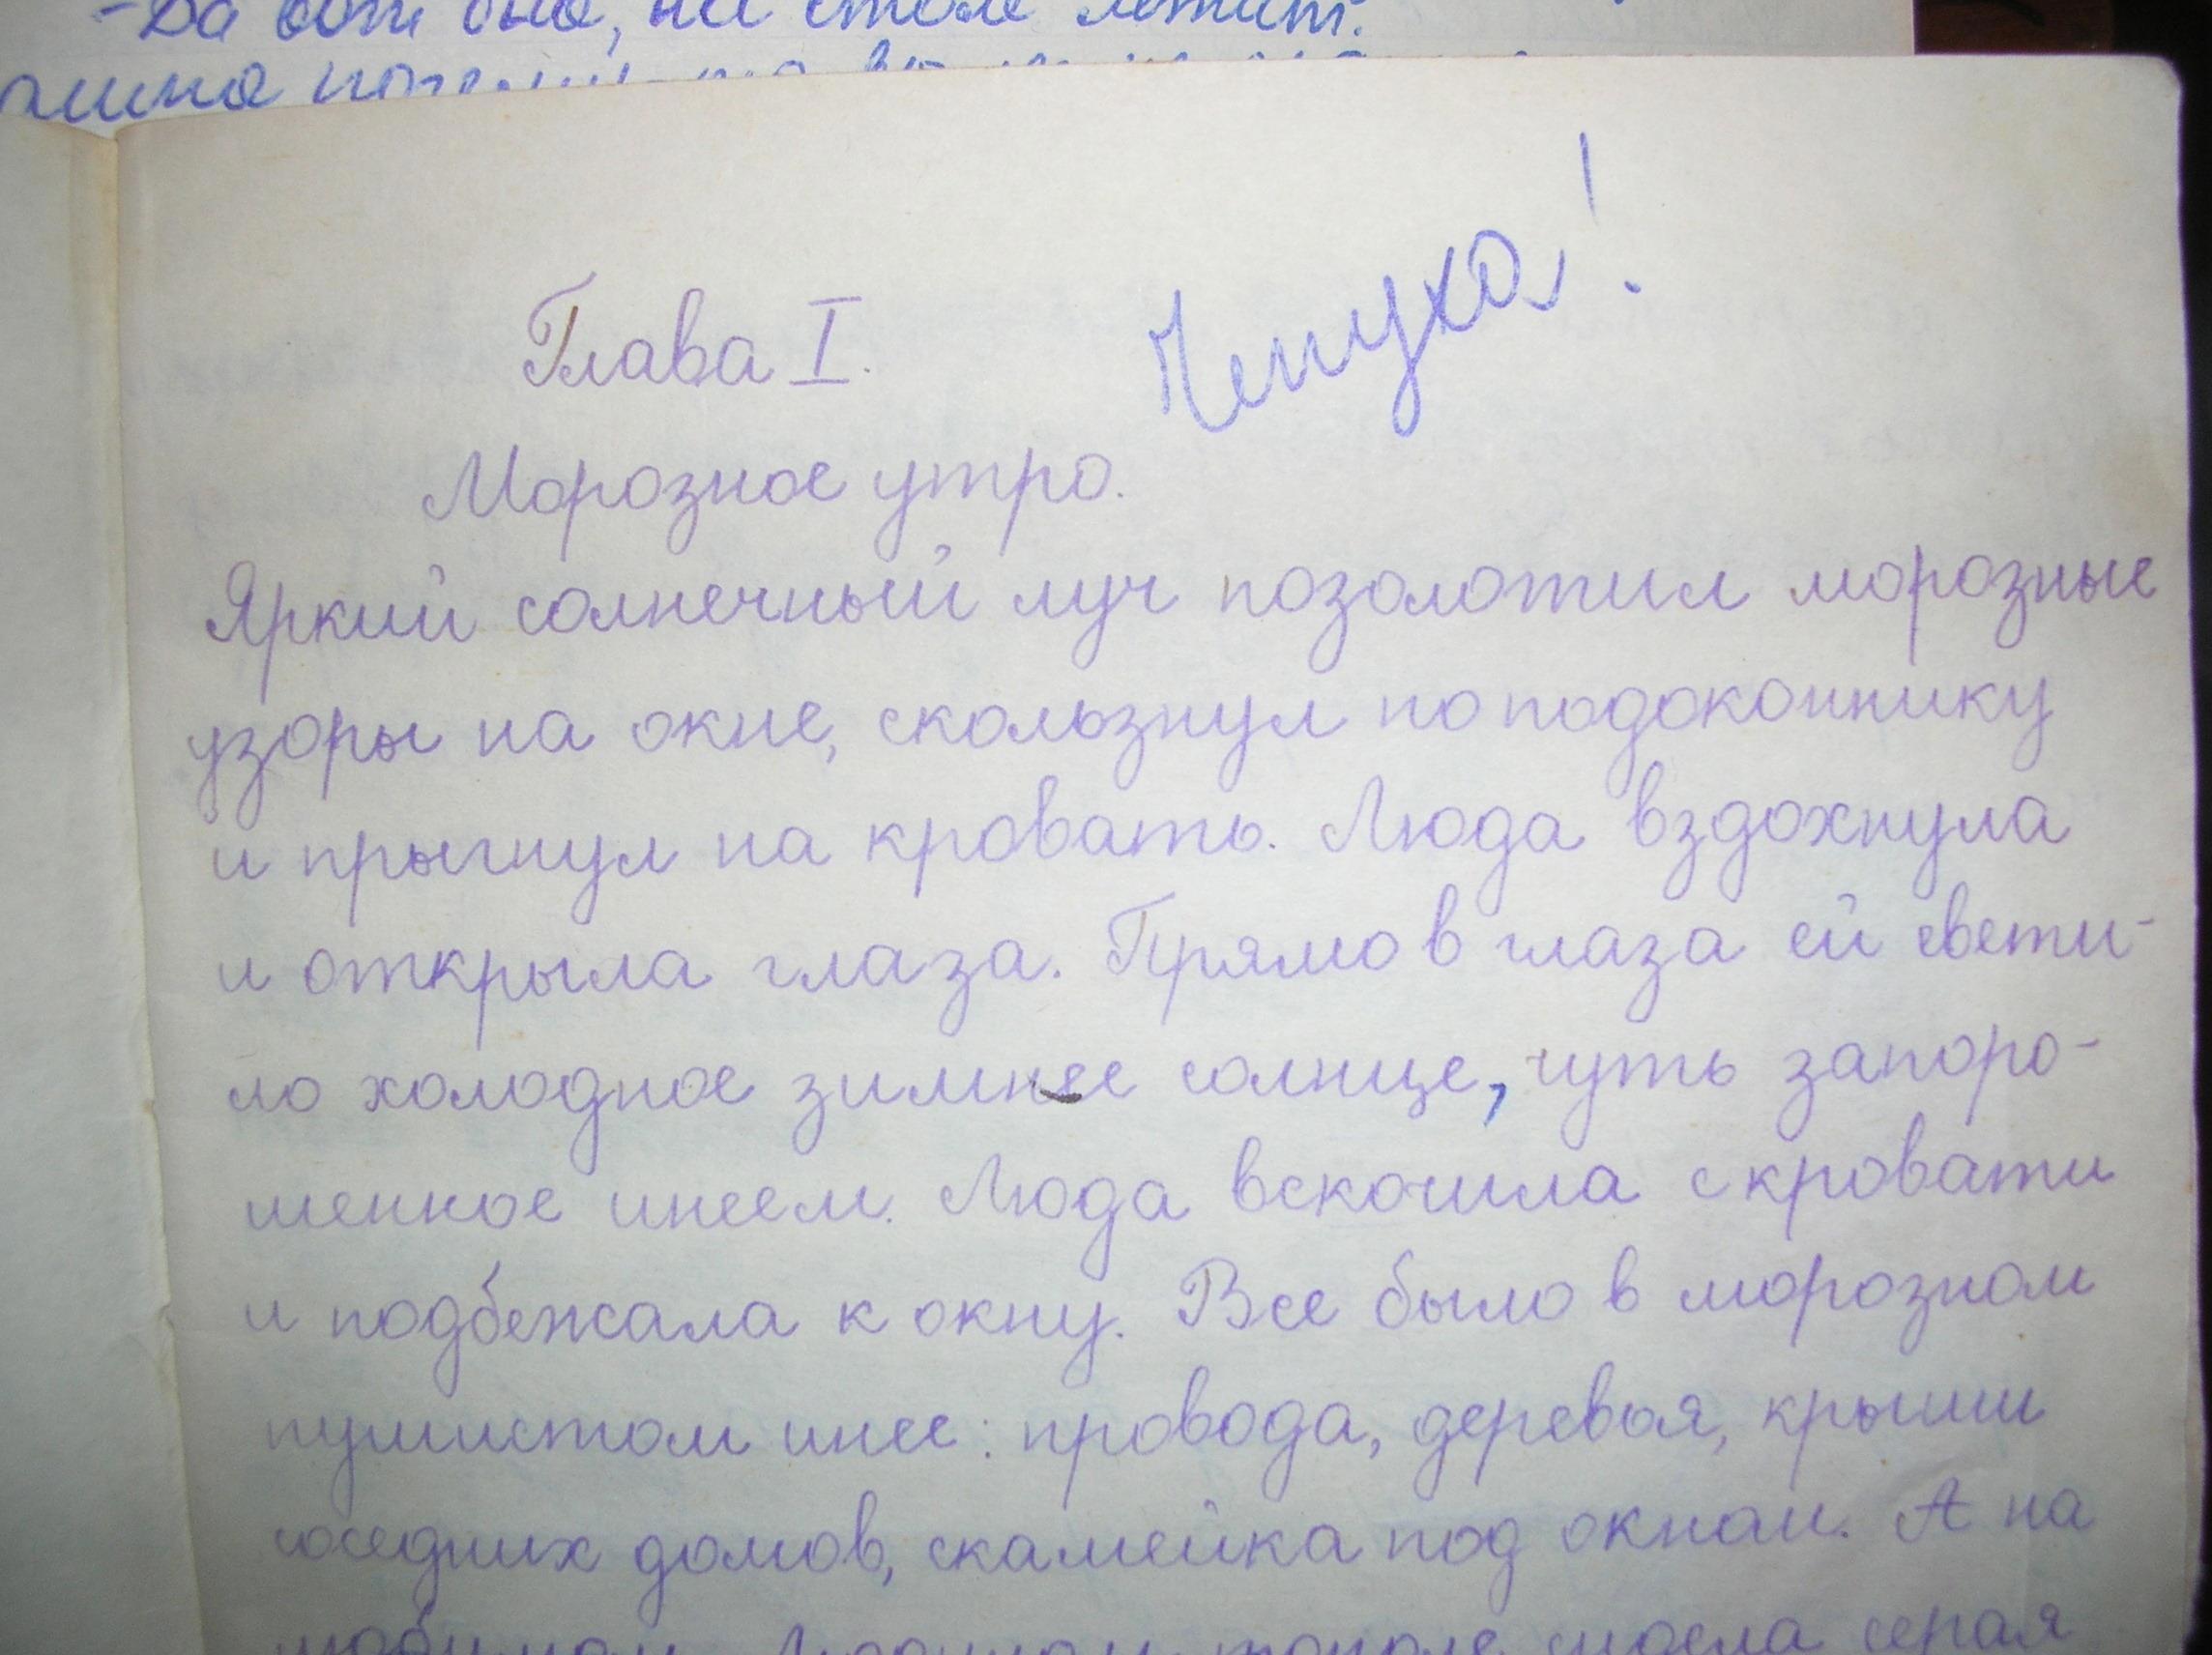 - Да вот она, на столе лежит.
Глава I.
Чепуха!
Морозное утро.
Яркий солнечный луч позолотил морозные
узоры на окне, скользнул по подоконнику
и прыгнул на кровать. Люда вздохнула
и открыла глаза. Прямо в глаза ей свети-
ло холодное зимнее солнце, чуть запоро-
шенное инеем. Люда вскочила с кровати
и подбежала к окну. Все было в морозном
пушистом инее: провода, деревья, крыши
соседних домов, скамейка под окнам. А на
серая